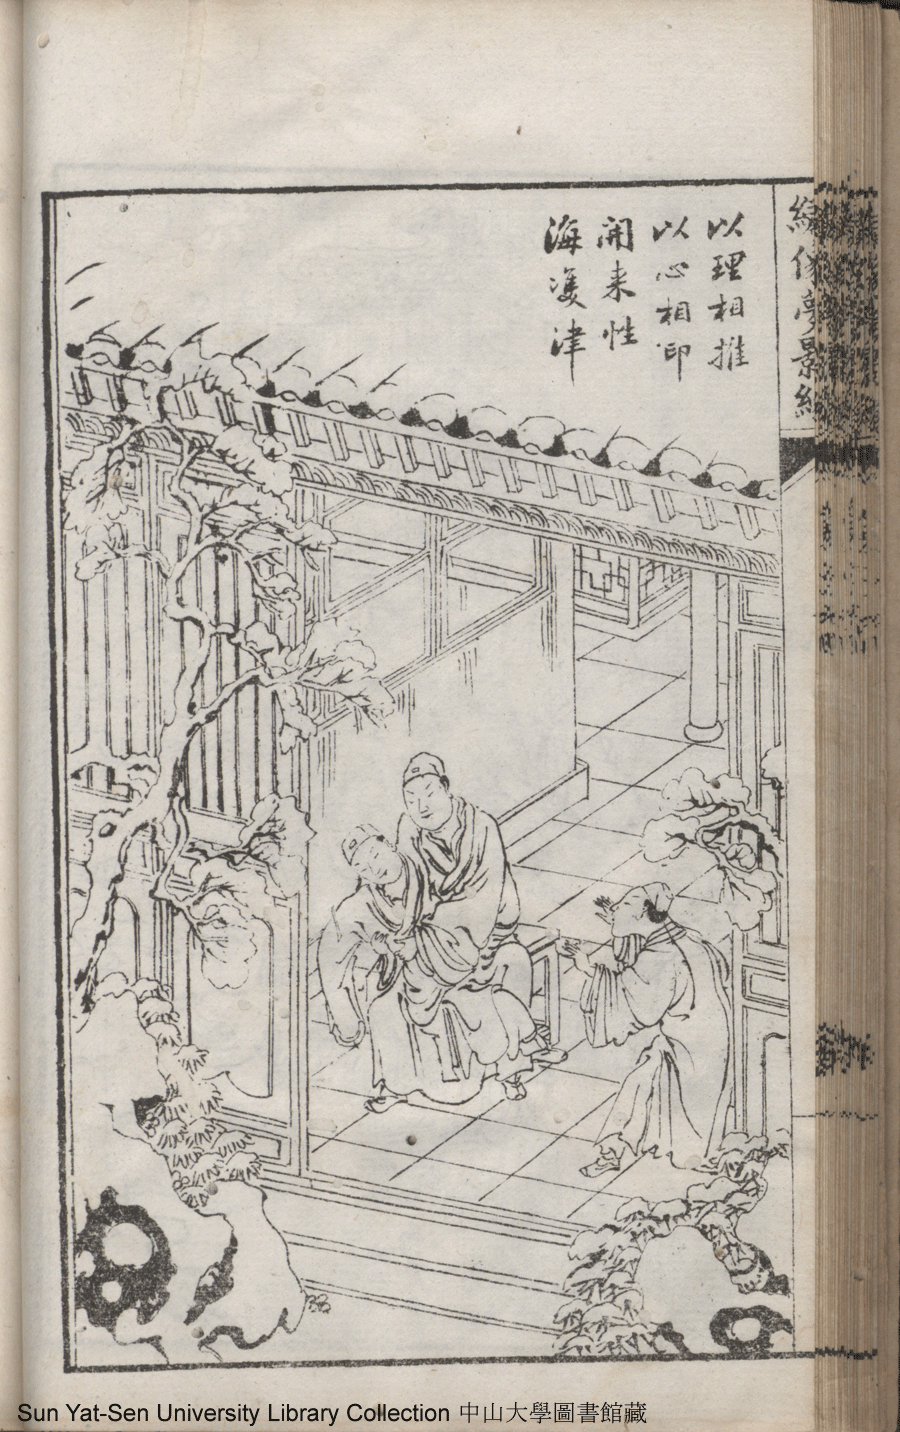 以理相推
以心相印
開来性
海濩津
繪像夢景緣
Sun Yat-Sen University Library Collection 中山大學圖書館藏